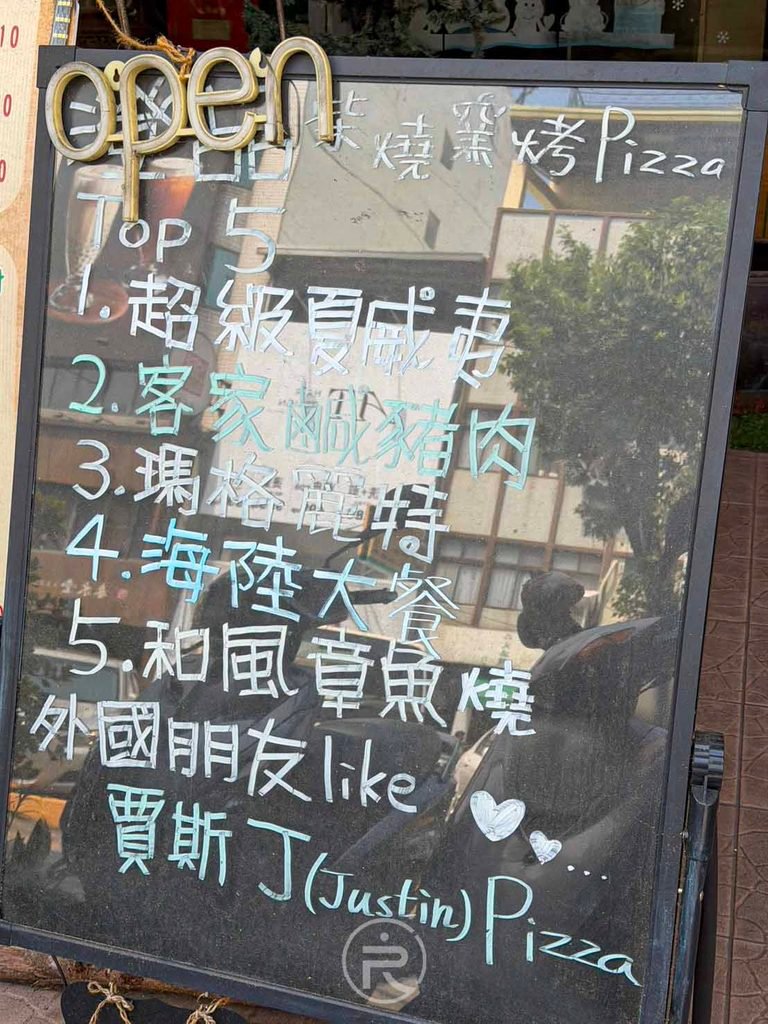 open
柴燒窯烤Pizza
Top 5
1.超級夏威夷
2.客家鹹豬肉
3.瑪格麗特
4.海陸大餐
5.和風章魚燒
外國朋友like
賈斯丁(Justin)Pizza